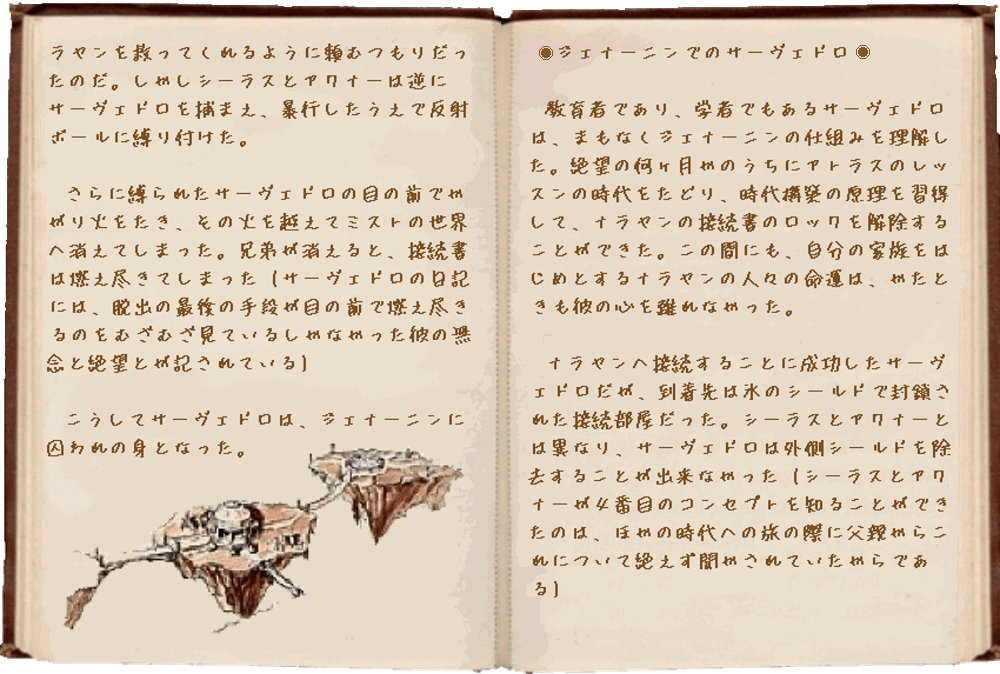 ラヤンを救ってくれるように頼むつもりだっ
たのだ。しかしシーラスとアクナーは逆に
サーヴェドロを捕まえ、暴行したうえで反射
ボールに縛り付けた。
さらに縛られたサーヴェドロの目の前でか
がり火をたき、その火を越えてミストの世界
へ消えてしまった。兄弟が消えると、接続書
は燃え尽きてしまった(サーヴェドロの日記
には、脱出の最後の手段が目の前で燃え尽き
るのをむざむざ見ているしかなかった彼の無
念と絶望とが記されている)
こうしてサーヴェドロは、ジェナーニンに
囚われの身となった。
◉ジェナーニンでのサーヴェドロ◉
教育者であり、学者でもあるサーヴェドロ
は、まもなくジェナーニンの仕組みを理解し
た。絶望の何ヶ月かのうちにアトラスのレッ
スンの時代をたどり、時代構築の原理を習得
して、ナラヤンの接続書のロックを解除する
ことができた。この間にも、自分の家族をは
じめとするナラヤンの人々の命運は、かたと
きも彼の心を離れなかった。
ナラヤンへ接続することに成功したサーヴ
ェドロだが、到着先は氷のシールドで封鎖さ
れた接続部屋だった。シーラスとアクナーと
は異なり、サーヴェドロは外側シールドを除
去することが出来なかった(シーラスとアク
ナーが4番目のコンセプトを知ることができ
たのは、ほかの時代への旅の際に父親からこ
れについて絶えず聞かされていたからであ
る)